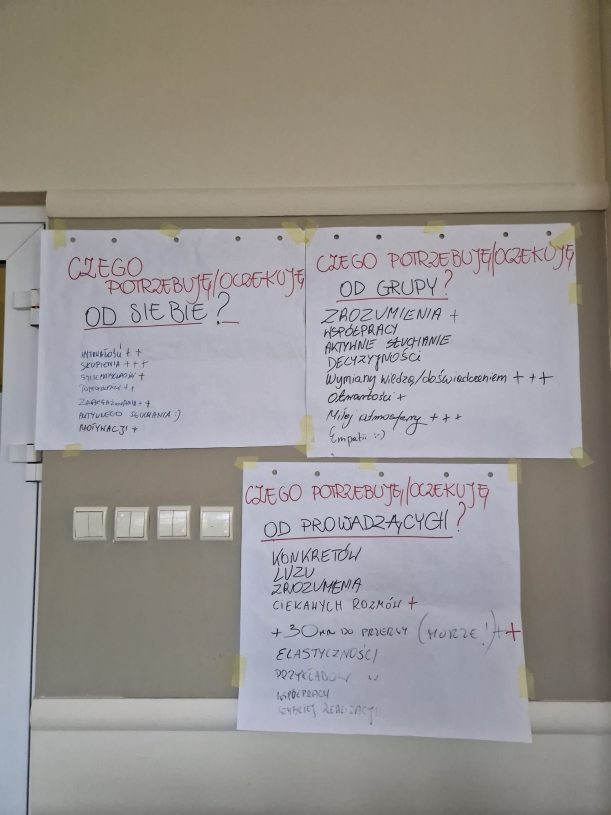 CZEGO
POTRZEBUJĘ/OCZEKUJĘ
OD SIEBIE?
SKUPIENIA + + +
ZAANGAŻOWANIA + +
AKTYWNEGO SŁUCHANIA :)
MOTYWACJI +
CZEGO POTRZEBUJĘ/OCZEKUJĘ
OD GRUPY?
ZROZUMIENIA +
WSPÓŁPRACY
AKTYWNE SŁUCHANIE
DECYZYJNOŚCI
Wymiany wiedzą/doświadczeniem + + +
Otwartości +
Miłej atmosfery + + +
Empatii :-)
CZEGO POTRZEBUJĘ/OCZEKUJĘ
OD PROWADZĄCYCH?
KONKRETÓW
LUZU
ZROZUMIENIA
CIEKAWYCH ROZMÓW +
+30 min DO PRZERWY (MORZE!) + +
ELASTYCZNOŚCI
PRZYKŁADÓW
WSPÓŁPRACY